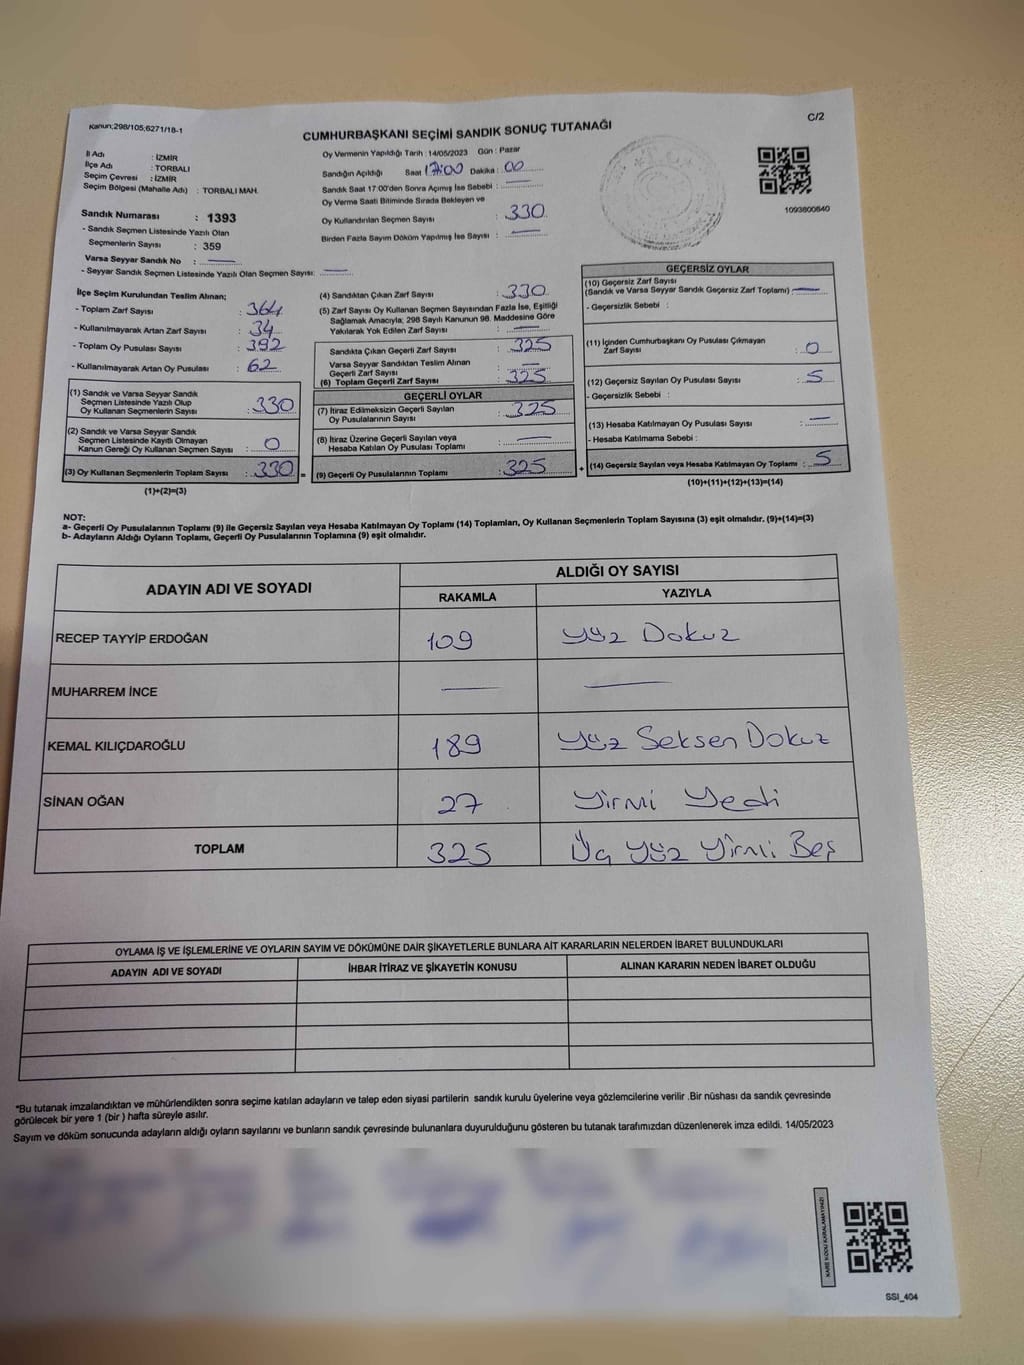 Kanun;298/105;6271/18-1
C/2
CUMHURBAŞKANI SEÇİMİ SANDIK SONUÇ TUTANAĞI
İl Adı : İZMİR
İlçe Adı : TORBALI
Seçim Çevresi : İZMİR
Seçim Bölgesi (Mahalle Adı) : TORBALI MAH.
Sandık Numarası : 1393
- Sandık Seçmen Listesinde Yazılı Olan
Seçmenlerin Sayısı : 359
Varsa Seyyar Sandık No :
- Seyyar Sandık Seçmen Listesinde Yazılı Olan Seçmen Sayısı:
Oy Vermenin Yapıldığı Tarih : 14/05/2023 Gün : Pazar
Sandığın Açıldığı Saat 17:00 Dakika : 00
Sandık Saat 17:00'den Sonra Açımış İse Sebebi :
Oy Verme Saati Bitiminde Sırada Bekleyen ve
Oy Kullandırılan Seçmen Sayısı : 330
Birden Fazla Sayım Döküm Yapılmış İse Sayısı :
1093800840
İlçe Seçim Kurulundan Teslim Alınan;
- Toplam Zarf Sayısı : 364
- Kullanılmayarak Artan Zarf Sayısı : 34
- Toplam Oy Pusulası Sayısı : 392
- Kullanılmayarak Artan Oy Pusulası : 62
(1) Sandık ve Varsa Seyyar Sandık
Seçmen Listesinde Yazılı Olup
Oy Kullanan Seçmenlerin Sayısı : 330
(2) Sandık ve Varsa Seyyar Sandık
Seçmen Listesinde Kayıtlı Olmayan
Kanun Gereği Oy Kullanan Seçmen Sayısı : 0
(3) Oy Kullanan Seçmenlerin Toplam Sayısı : 330 =
(1)+(2)=(3)
(4) Sandıktan Çıkan Zarf Sayısı : 330
(5) Zarf Sayısı Oy Kullanan Seçmen Sayısından Fazla İse, Eşitliği
Sağlamak Amacıyla; 298 Sayılı Kanunun 98. Maddesine Göre
Yakılarak Yok Edilen Zarf Sayısı :
Sandıkta Çıkan Geçerli Zarf Sayısı : 325
Varsa Seyyar Sandıktan Teslim Alınan
Geçerli Zarf Sayısı :
(6) Toplam Geçerli Zarf Sayısı : 325
GEÇERLİ OYLAR
(7) İtiraz Edilmeksizin Geçerli Sayılan
Oy Pusulalarının Sayısı : 325
(8) İtiraz Üzerine Geçerli Sayılan veya
Hesaba Katılan Oy Pusulası Toplamı :
(9) Geçerli Oy Pusulalarının Toplamı : 325 +
GEÇERSİZ OYLAR
(10) Geçersiz Zarf Sayısı
(Sandık ve Varsa Seyyar Sandık Geçersiz Zarf Toplamı) :
- Geçersizlik Sebebi :
(11) İçinden Cumhurbaşkanı Oy Pusulası Çıkmayan
Zarf Sayısı : 0
(12) Geçersiz Sayılan Oy Pusulası Sayısı : 5
- Geçersizlik Sebebi :
(13) Hesaba Katılmayan Oy Pusulası Sayısı :
- Hesaba Katılmama Sebebi :
(14) Geçersiz Sayılan veya Hesaba Katılmayan Oy Toplamı : 5
(10)+(11)+(12)+(13)=(14)
NOT:
a- Geçerli Oy Pusulalarının Toplamı (9) ile Geçersiz Sayılan veya Hesaba Katılmayan Oy Toplamı (14) Toplamları, Oy Kullanan Seçmenlerin Toplam Sayısına (3) eşit olmalıdır. (9)+(14)=(3)
b- Adayların Aldığı Oyların Toplamı, Geçerli Oy Pusulalarının Toplamına (9) eşit olmalıdır.
ADAYIN ADI VE SOYADI
ALDIĞI OY SAYISI
RAKAMLA YAZIYLA
RECEP TAYYİP ERDOĞAN 109 Yüz Dokuz
MUHARREM İNCE
KEMAL KILIÇDAROĞLU 189 Yüz Seksen Dokuz
SİNAN OĞAN 27 Yirmi Yedi
TOPLAM 325 Üç Yüz Yirmi Beş
OYLAMA İŞ VE İŞLEMLERİNE VE OYLARIN SAYIM VE DÖKÜMÜNE DAİR ŞİKAYETLERLE BUNLARA AİT KARARLARIN NELERDEN İBARET BULUNDUKLARI
ADAYIN ADI VE SOYADI İHBAR İTİRAZ VE ŞİKAYETİN KONUSU ALINAN KARARIN NEDEN İBARET OLDUĞU
*Bu tutanak imzalandıktan ve mühürlendikten sonra seçime katılan adayların ve talep eden siyasi partilerin sandık kurulu üyelerine veya gözlemcilerine verilir .Bir nüshası da sandık çevresinde
görülecek bir yere 1 (bir ) hafta süreyle asılır.
Sayım ve döküm sonucunda adayların aldığı oyların sayılarını ve bunların sandık çevresinde bulunanlara duyurulduğunu gösteren bu tutanak tarafımızdan düzenlenerek imza edildi. 14/05/2023
KARE KODU KARALAMAYINIZ!
SSI_404